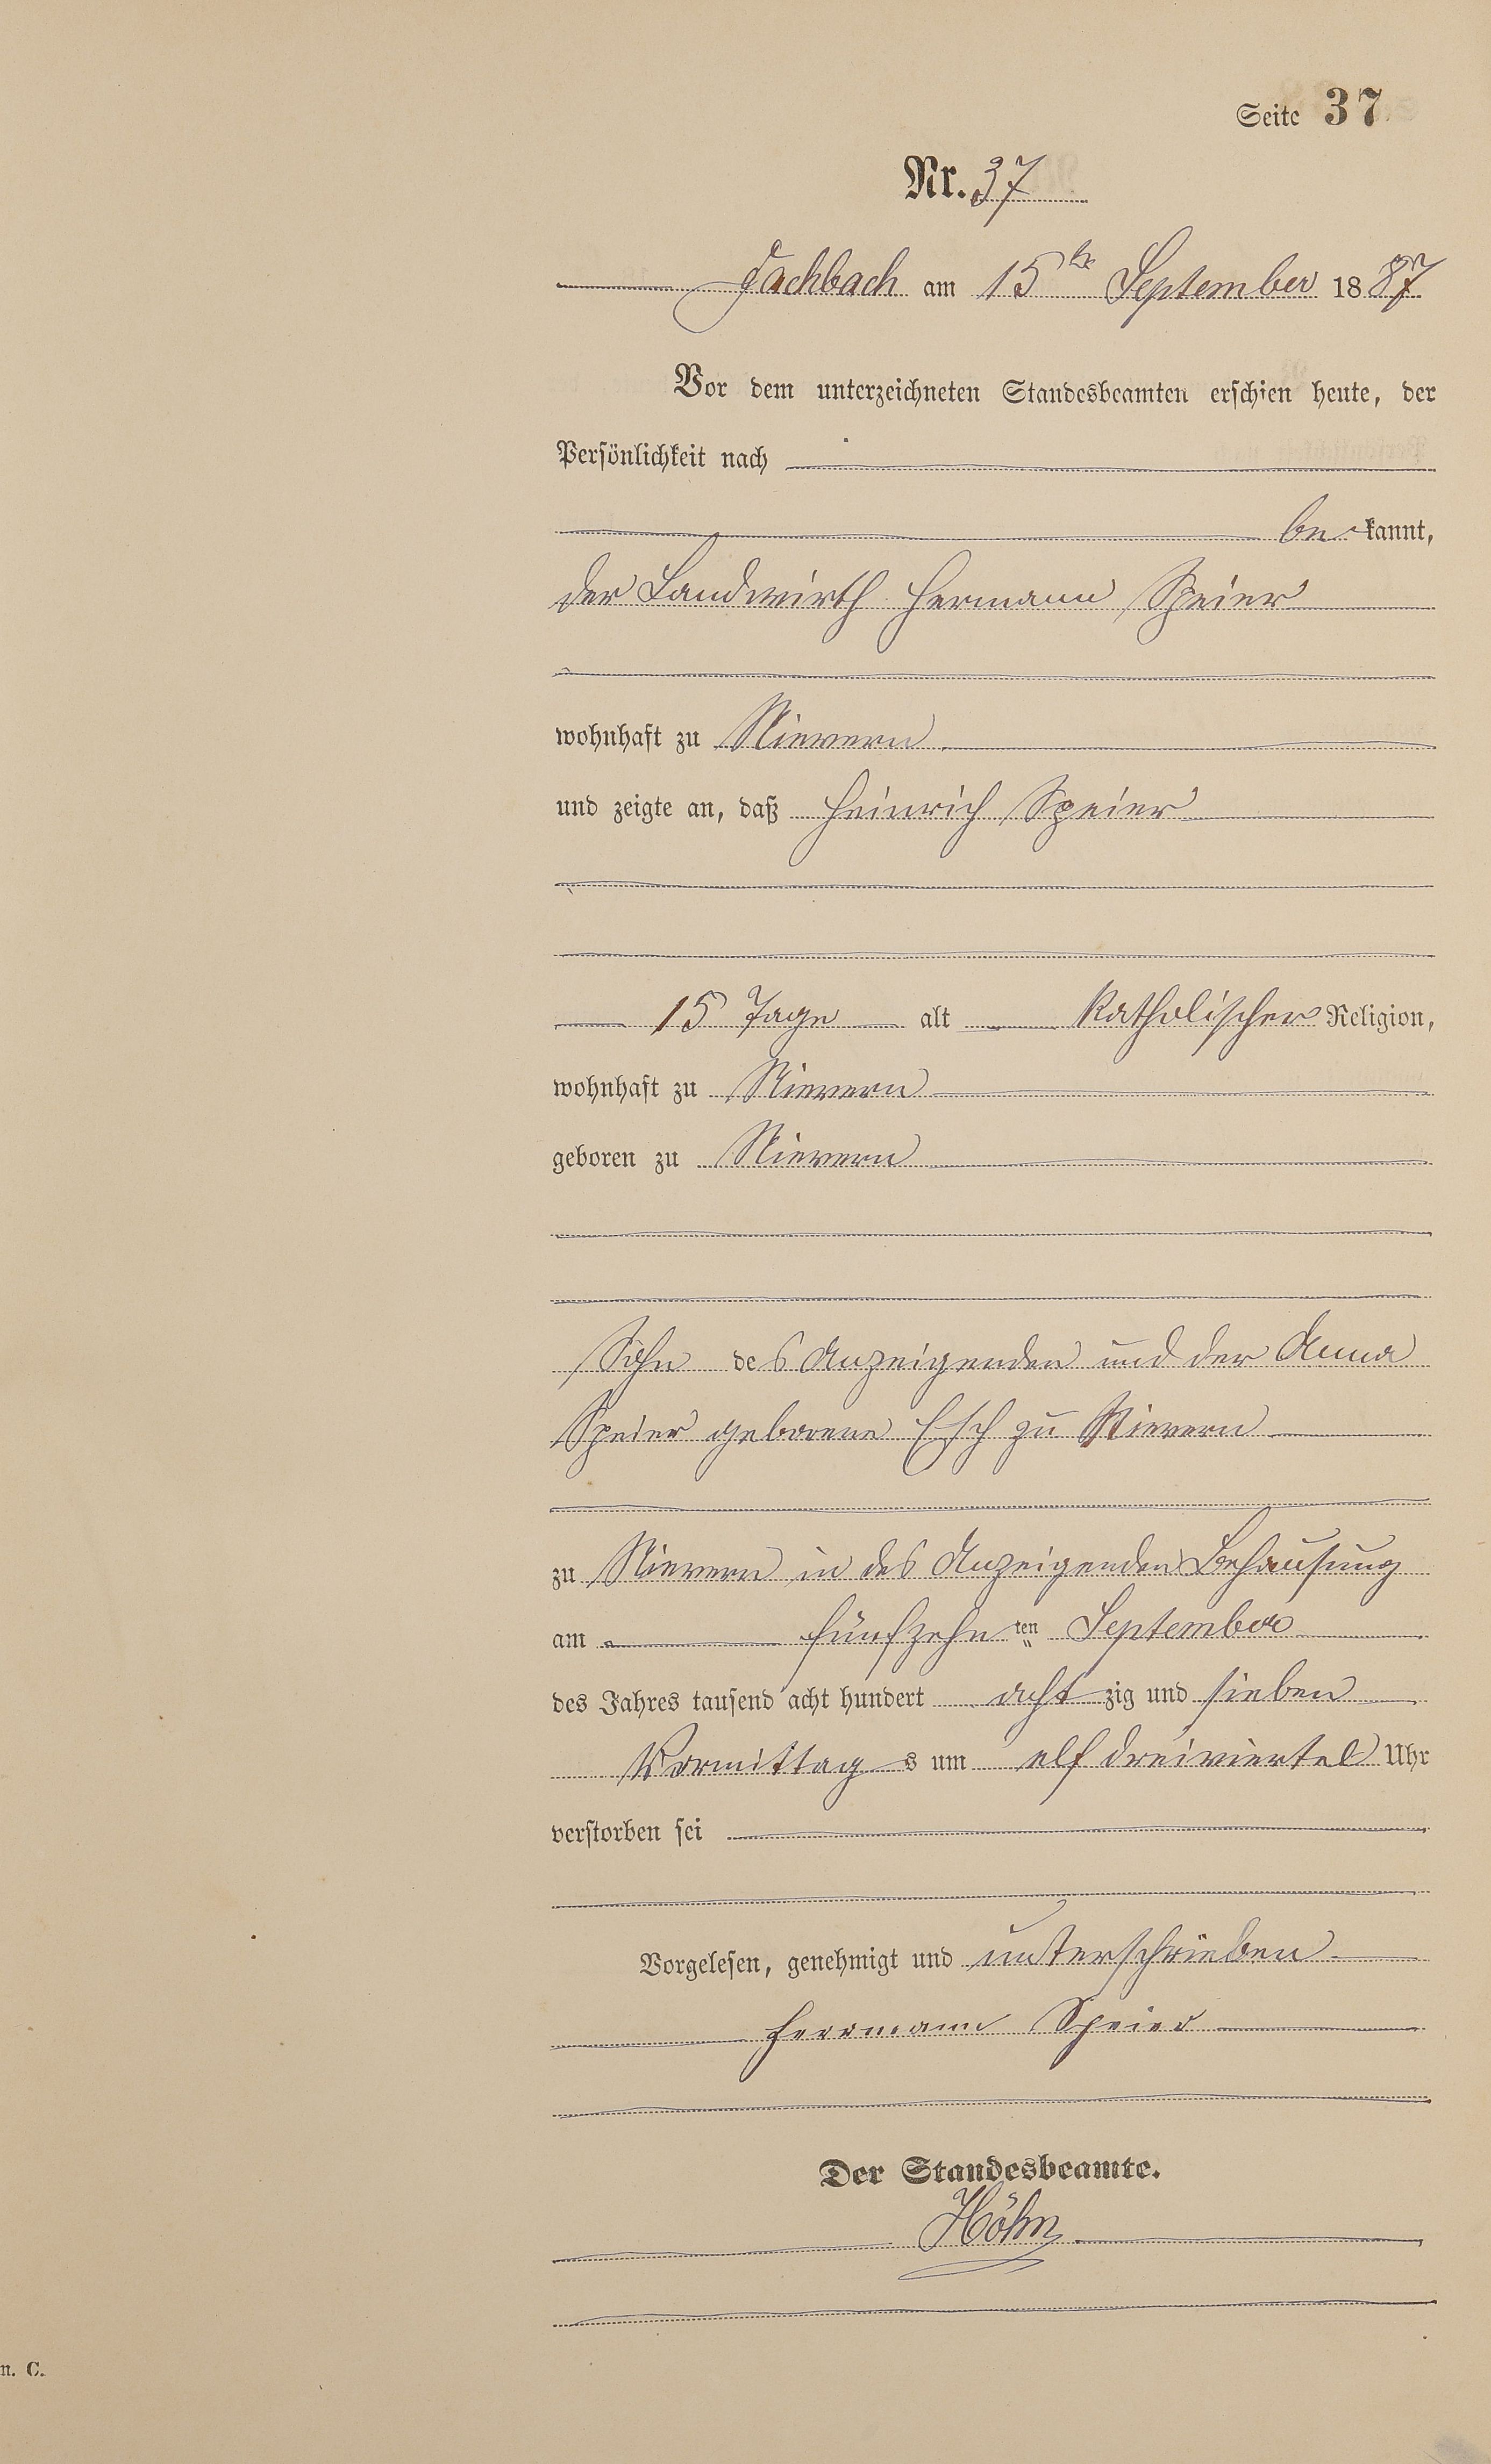 Seite 37
Nr. 37
Fachbach am 15ten September 1887
Vor dem unterzeichneten Standesbeamten erschien heute, der
Persönlichkeit nach
bekannt,
der Landwirth Hermann Speier
wohnhaft zu Nievern
und zeigte an, daß Heinrich Speier
15 Tage alt katholischer Religion,
wohnhaft zu Nievern
geboren zu Nievern
Sohn des Anzeigenden und der Anna
Speier geborene Esch zu Nievern
zu Nievern in des Anzeigenden Behausung
am fünfzehnten September
des Jahres tausend acht hundert achtzig und sieben
Vormittags um elf dreiviertel Uhr
verstorben sei
Vorgelesen, genehmigt und unterschrieben
Herrmann Speier
Der Standesbeamte.
Höhn
n. C.